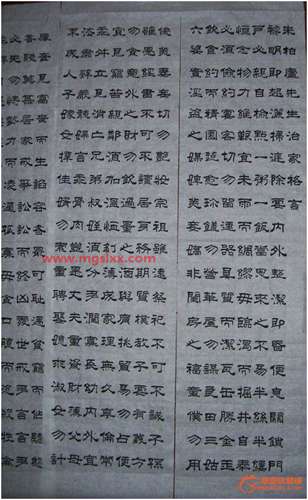 朱柏廬先生治家格言
黎明即起灑掃庭除要內外整潔既昏便息關鎖門
戶必親自檢點一粥一飯當思來處不易半絲半縷
恆念物力維艱宜未雨而綢繆毋臨渴而掘井自奉
必須儉約宴客切勿留連器具質而潔瓦缶勝金玉
飲食約而精園蔬愈珍饈勿營華屋勿謀良田三姑
六婆實淫盜之媒婢美妾嬌非閨房之福童僕勿用
俊美妻妾切忌艷妝祖宗雖遠祭祀不可不誠子孫
雖愚經書不可不讀居身務期質樸教子要有義方
勿貪意外之財勿飲過量之酒與肩挑貿易毋佔便
宜見窮苦親鄰須加溫恤刻薄成家理無久享倫常
乖舛立見消亡兄弟叔侄須分多潤寡長幼內外宜
法肅辭嚴聽婦言乖骨肉豈是丈夫重資財薄父母
不成人子嫁女擇佳婿毋索重聘娶媳求淑女勿計
厚奩見富貴而生諂容者最可恥遇貧窮而作驕態
者賤莫甚居家戒爭訟訟則終凶處世戒多言言
必失勿恃勢力而凌逼孤寡毋貪口腹而恣殺
www.mgsixx.com